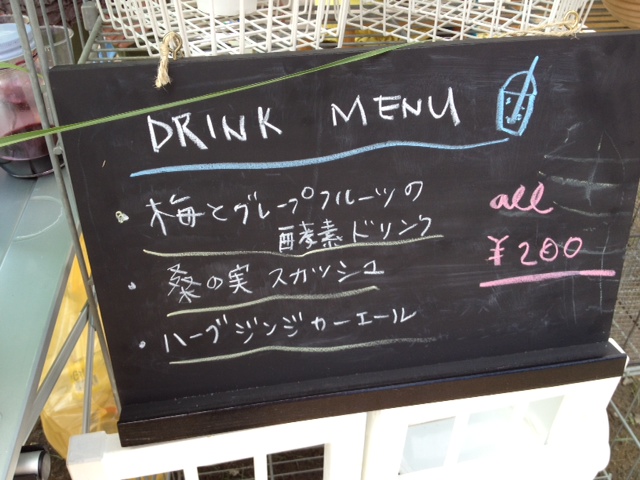 DRINK MENU
・梅とグレープフルーツの
酵素ドリンク
・桑の実 スカッシュ
・ハーブジンジャーエール
all
¥200